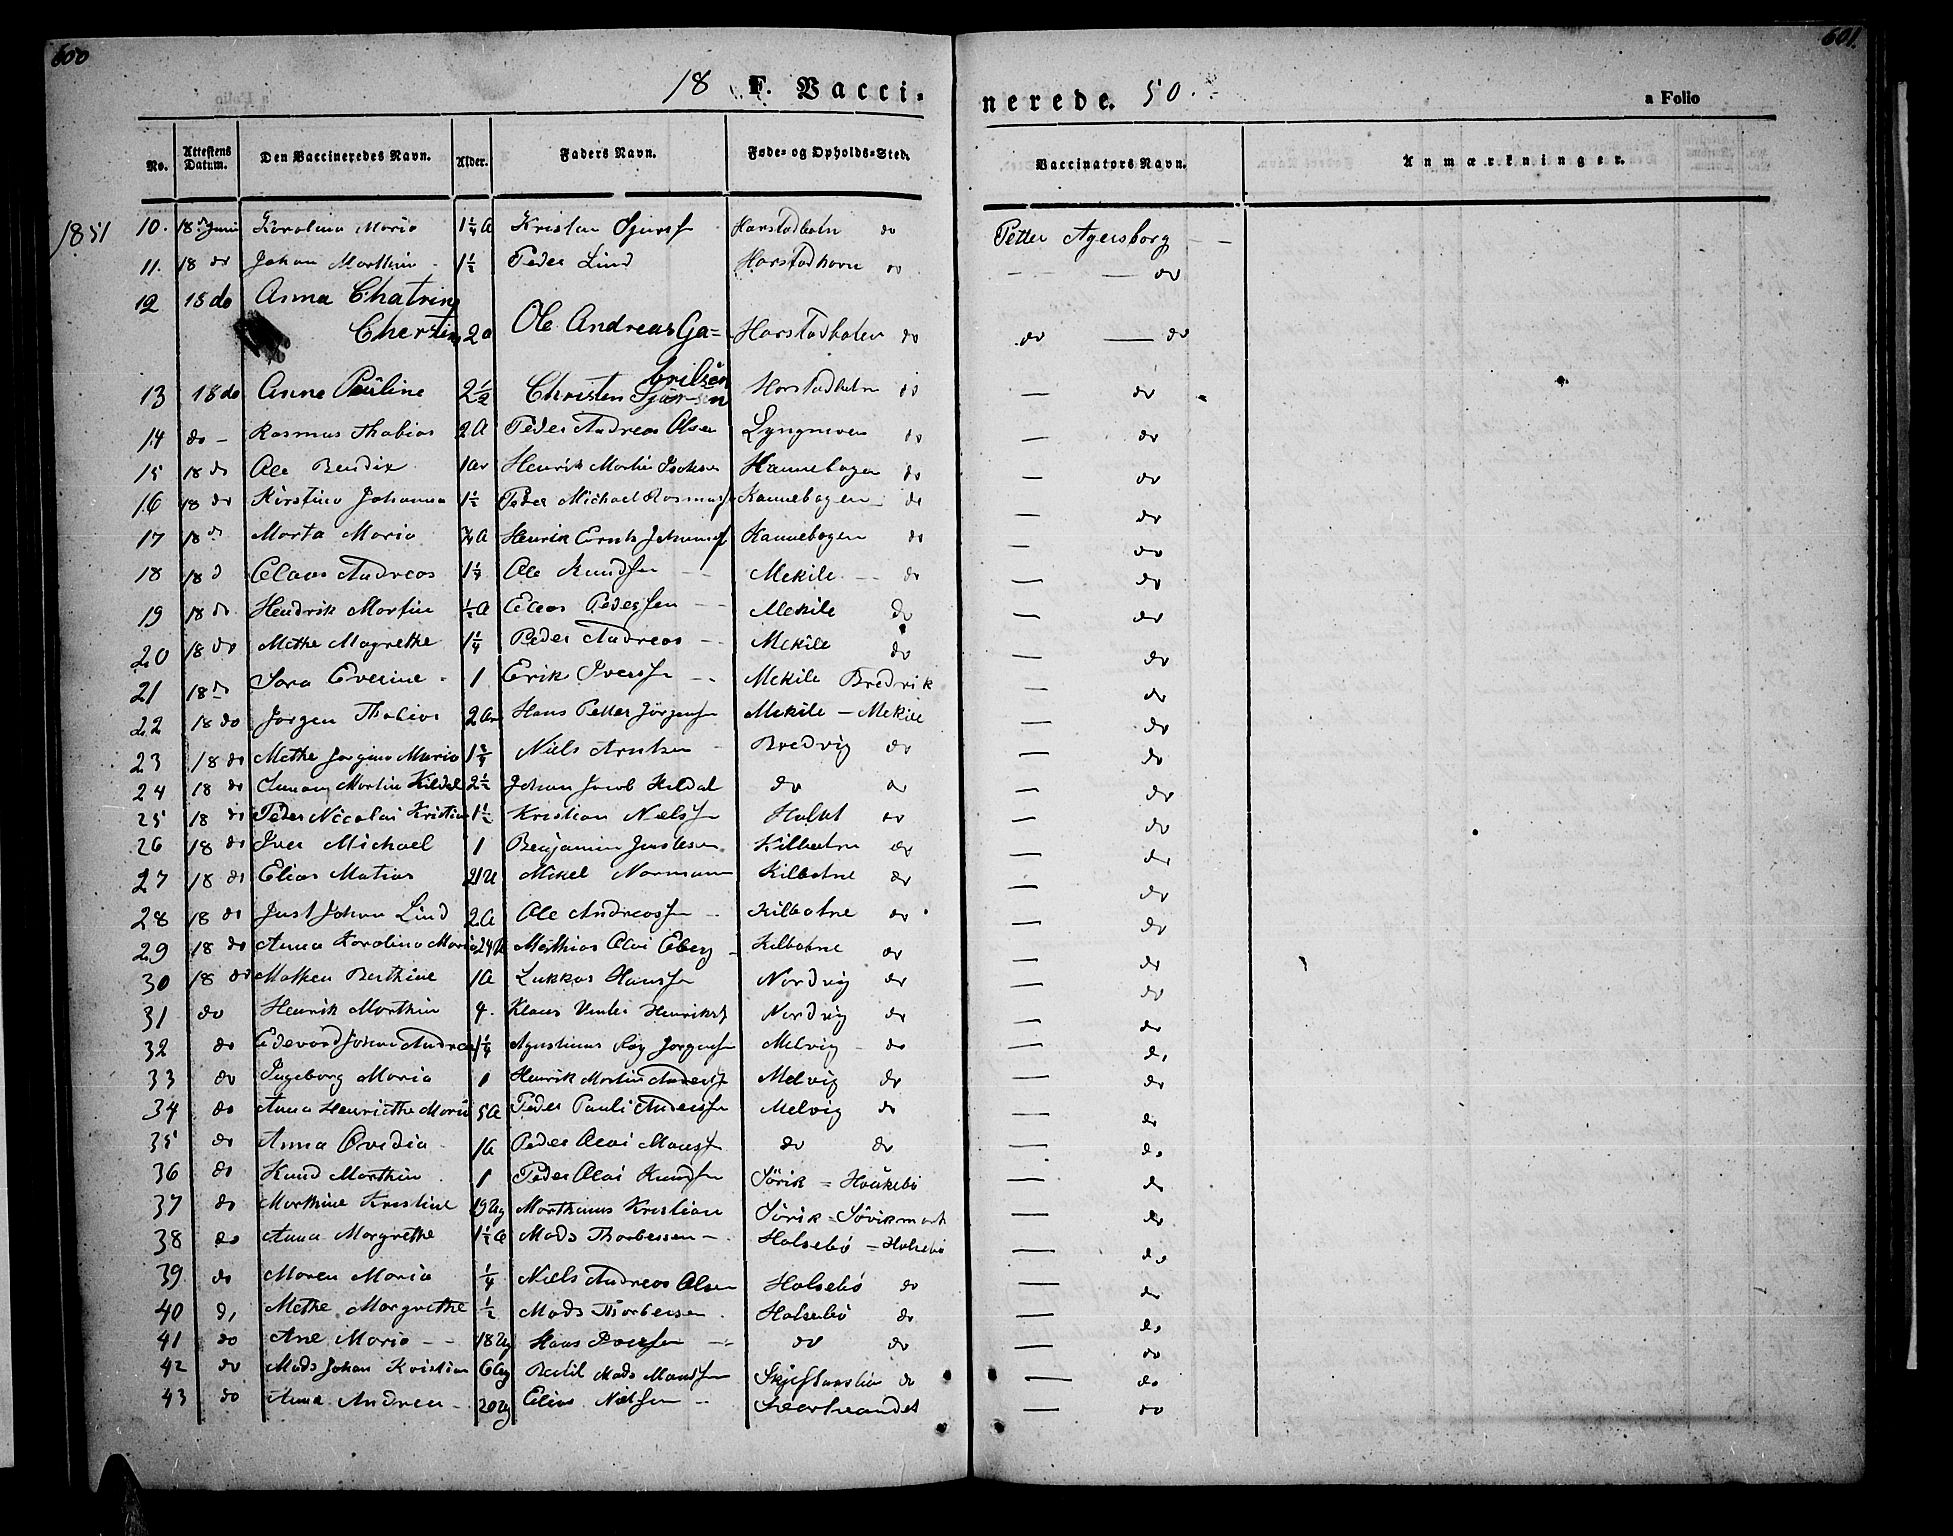 600
601.
18 F. Vaccinerede. 50.
a Folio
No. Attestens Datum. Den Vaccineredes Navn. Alder. Faders Navn. Føde- og Opholds-Sted. Vaccinators Navn. Anmærkninger.
1851 10. 18de Juni Karolina Maria 1¼ A Kristen Harstadbotn do Petter Agersborg
11. 18 do Johan Marthin 1½ Peder Lind Harstadhavn do — do
12 18 do Anna Chatrina
Cherstin 2 a Ole Andreas Ga= Harstadboten do do — do
brilsen
13 18 do Anne Pauline 2½ Christen Sjursen Harstadbotn do — do
14 do - Rasmus Thobias 2 A Peder Andreas Olsen do — do
15 18 do Ole Bendix 1 ar Henrik Martin Kannebogen do — do
16 18 do Kirstina Johanna 1½ Peder Michael Rasmuss Kannebogen do — do
17 18 do Marta Maria A Henrik Kannebogen do — do
18 18 d Claas Andreas 1¼ Ole Knudsen Mekile do — do
19 18 do Hendrik Martin ½ A Elias Pedersen Mekile do — do
20 18 do Methe Magrethe 1¼ Peder Andreas Mekile do — do
21 18 do Sara Everine 1 Erik Iverssen Mekile Bredvik — do
22 18 do Jørgen Thobias 2 ar Hans Petter Jörgens Mekile — Mekile — do
23 18 do Methe Jørgine Maria Niels Arntsen Bredvig do — do
24 18 do Martin Kildal 2½ Johan Jacob Kildal do do — do
25 18 do Peder Nicolai Kristian 1½ Kristian Nielss do — do
26 18 do Iver Michael 1 Benjamin Kilbotne do — do
27 18 do Elias Matias Mikel Normann Kilbotne do — do
28 18 do Just Johan Lind 2 A Ole Andreassen Kilbotne do — do
29 18 do Anna Karolina Maria Mathias Olai Eberg Kilbotne do — do
30 18 do Berthine 1 A Lukkas Hanssen Nordvig do — do
31 do Henrik Marthin 4. Klaus Henriks Nordvig do — do
32 do Edevard Johan Andreas 1¼ Agustinus Jørgensen Melvig do — do
33 do Ingeborg Maria 1 Henrik Martin Anderss Melvig do — do
34 do Anna Henriethe Maria 5 A Peder Pauli Anderssen Melvig do — do
35 do Anna Ovedia 1 A Peder Olai do do — do
36 do Knud Marthin 1 Peder Olai Knudsen Sörik = — do
37 do Marthine Kristine 19 Ug Marthinus Kristian Sörik = Sövikmark — do
38 do Anna Margrethe 1½ a Mads Thorbersen Halsebö = Halsebö — do
39 do Maren Maria ¼ Niels Andreas Olsen Halsebö do — do
40 d, Methe Margrethe ½ Mads Thorbersen Halsebö do — do
41 do Ane Maria 18 Ug Hans Iversen do do — do
42 do Mads Johan Kristian 6 Ug Mads do — do
43 do Anna Andrea 20 Ug Elias Nielsen — do